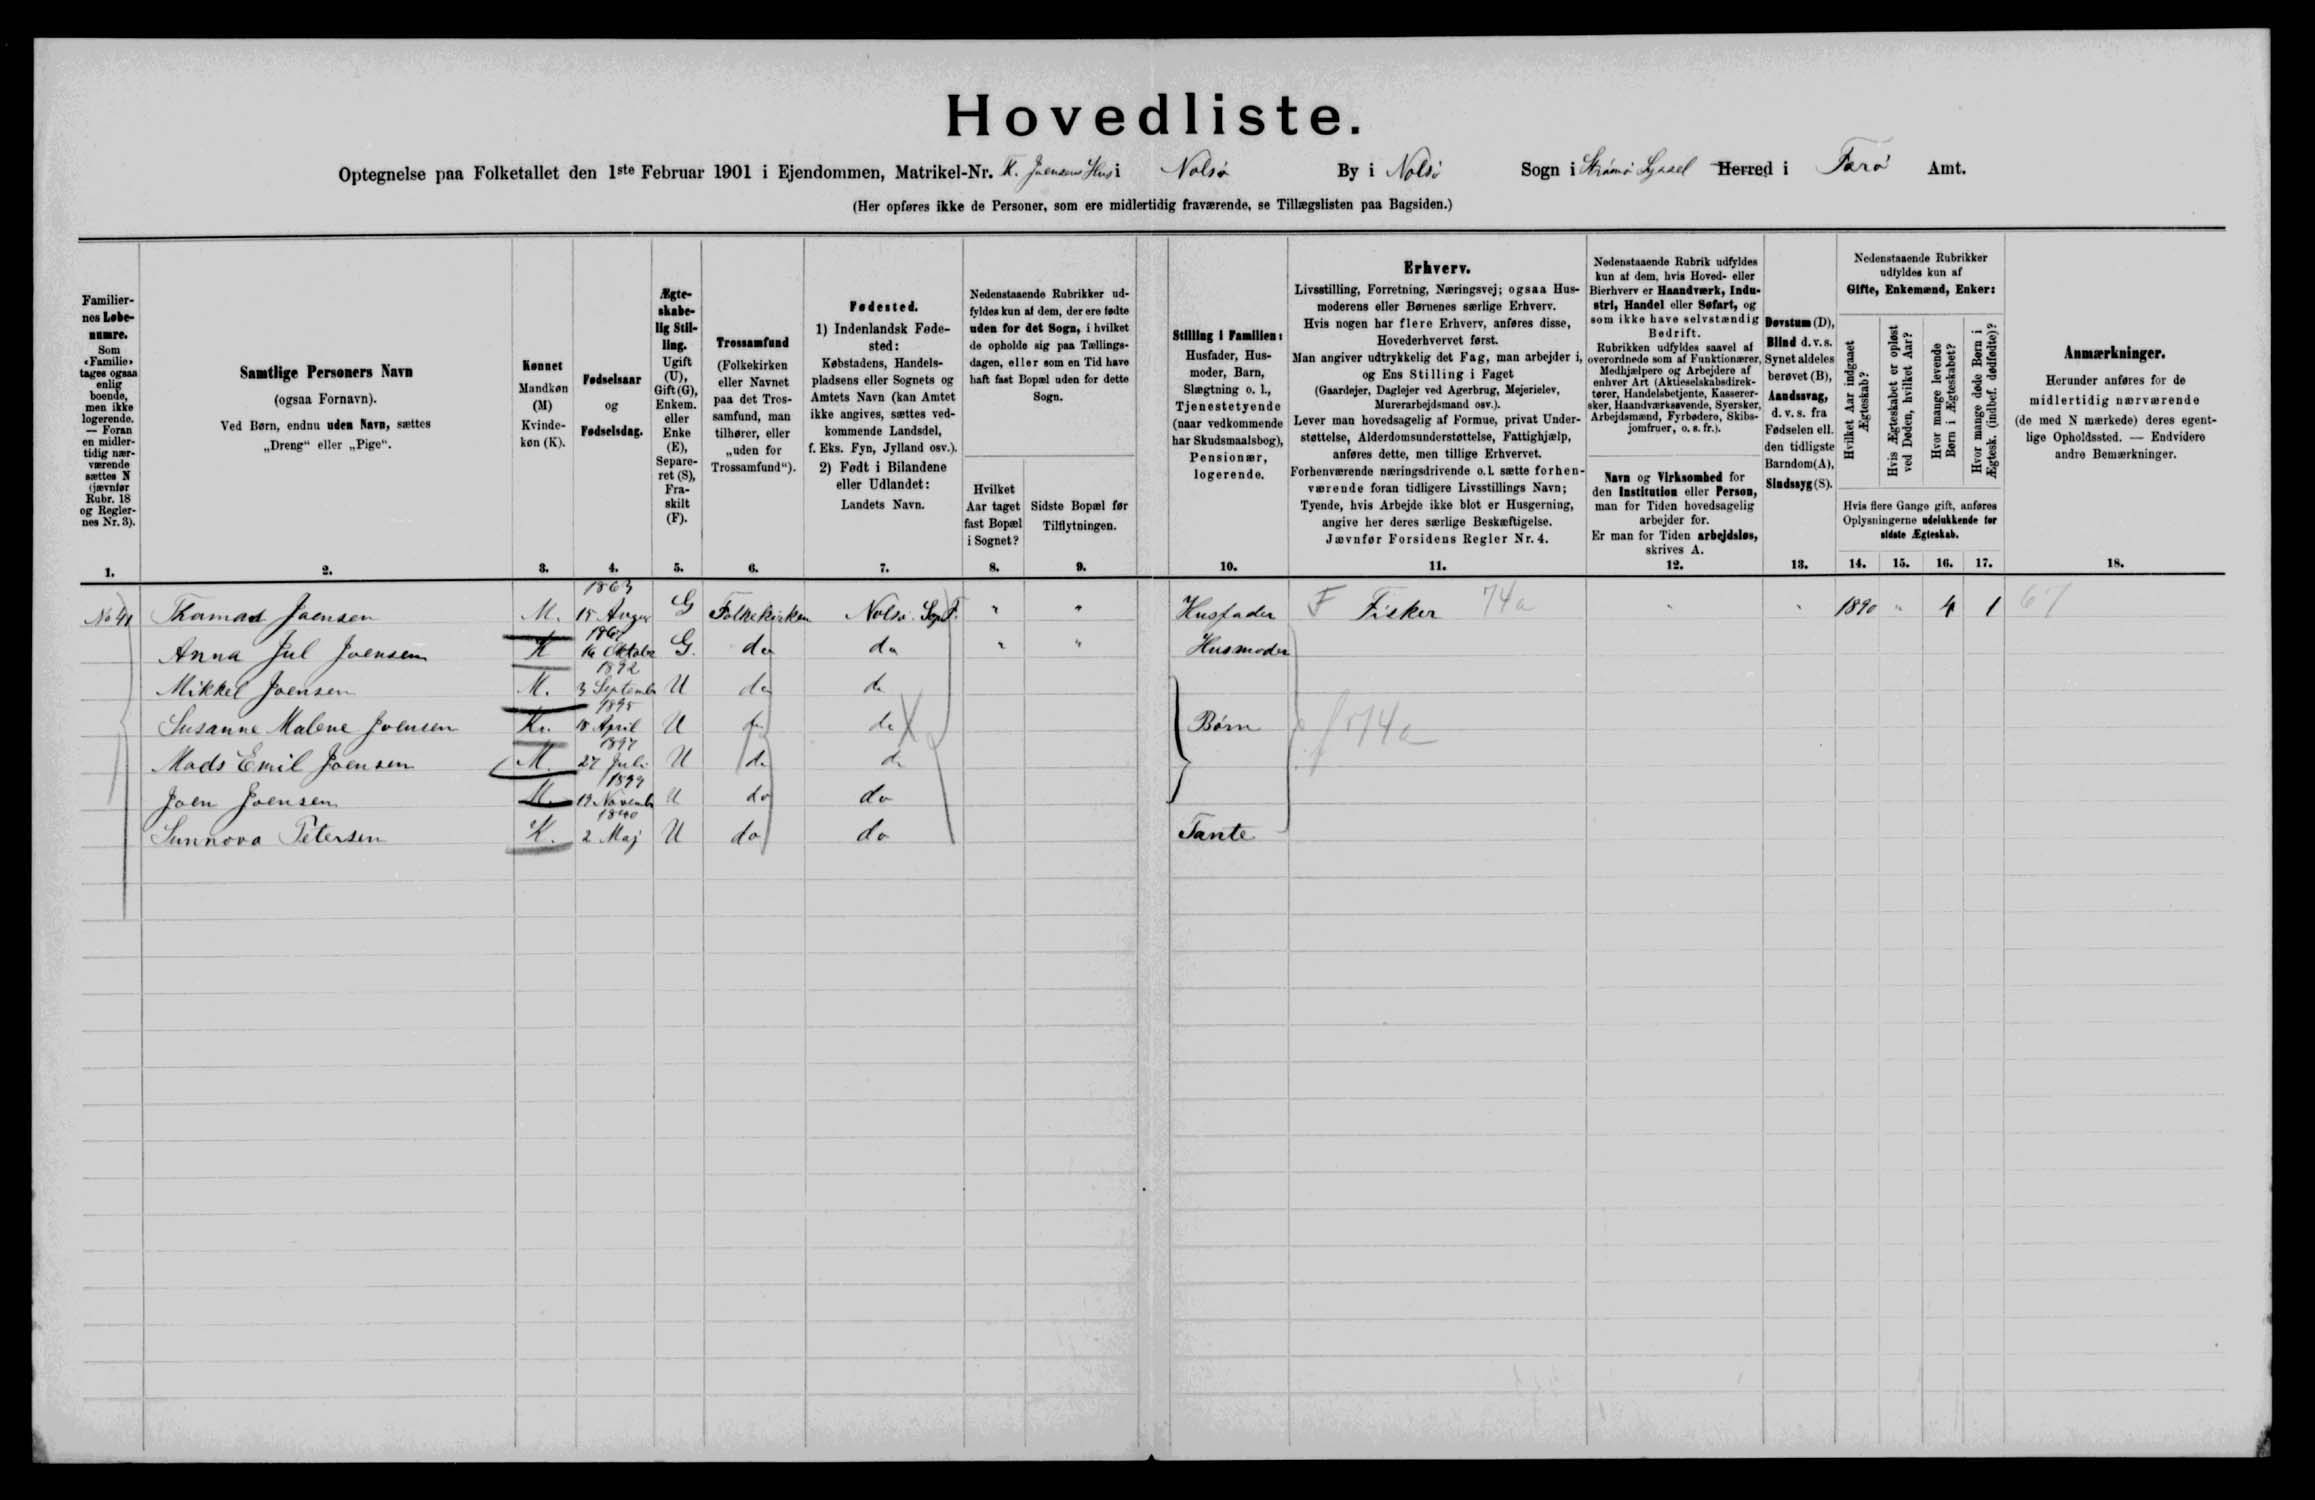 Hovedliste.
Optegnelse paa Folketallet den 1ste Februar 1901 i Ejendommen, Matrikel-Nr. K. Joensens Hus i Nolsø By i Nolsø Sogn i Strømø Syssel Herred i Færø Amt.
(Her opføres ikke de Personer, som ere midlertidig fraværende, se Tillægslisten paa Bagsiden.)
Familiernes Løbenumre.
Som «Familie» tages ogsaa enlig boende, men ikke logerende. — Foran en midlertidig nærværende sættes N (jævnfør Rubr. 18 og Reglernes Nr. 3).
1.
Samtlige Personers Navn
(ogsaa Fornavn).
Ved Børn, endnu uden Navn, sættes
„Dreng“ eller „Pige“.
2.
Kønnet
Mandkøn (M)
Kvindekøn (K).
3.
Fødselsaar
og
Fødselsdag.
4.
Ægteskabelig Stilling.
Ugift (U), Gift (G), Enkem. eller Enke (E), Separeret (S), Fraskilt (F).
5.
Trossamfund
(Folkekirken eller Navnet paa det Trossamfund, man tilhører, eller „uden for Trossamfund“).
6.
Fødested.
1) Indenlandsk Fødested:
Købstadens, Handelspladsens eller Sognets og Amtets Navn (kan Amtet ikke angives, sættes vedkommende Landsdel, f. Eks. Fyn, Jylland osv.).
2) Født i Bilandene eller Udlandet:
Landets Navn.
7.
Nedenstaaende Rubrikker udfyldes kun af dem, der ere fødte uden for det Sogn, i hvilket de opholde sig paa Tællingsdagen, eller som en Tid have haft fast Bopæl uden for dette Sogn.
Hvilket Aar taget fast Bopæl i Sognet?
8.
Sidste Bopæl før Tilflytningen.
9.
Stilling i Familien:
Husfader, Husmoder, Barn, Slægtning o. l., Tjenestetyende (naar vedkommende har Skudsmaalsbog), Pensionær, logerende.
10.
Erhverv.
Livsstilling, Forretning, Næringsvej; ogsaa Husmoderens eller Børnenes særlige Erhverv.
Hvis nogen har flere Erhverv, anføres disse, Hovederhvervet først.
Man angiver udtrykkelig det Fag, man arbejder i, og Ens Stilling i Faget
(Gaardejer, Daglejer ved Agerbrug, Mejerielev, Murerarbejdsmand osv.).
Lever man hovedsagelig af Formue, privat Understøttelse, Alderdomsunderstøttelse, Fattighjælp, anføres dette, men tillige Erhvervet.
Forhenværende næringsdrivende o. l. sætte forhenværende foran tidligere Livsstillings Navn;
Tyende, hvis Arbejde ikke blot er Husgerning, angive her deres særlige Beskæftigelse.
Jævnfør Forsidens Regler Nr. 4.
11.
Nedenstaaende Rubrik udfyldes kun af dem, hvis Hoved- eller Bierhverv er Haandværk, Industri, Handel eller Søfart, og som ikke have selvstændig Bedrift.
Rubrikken udfyldes saavel af overordnede som af Funktionærer, Medhjælpere og Arbejdere af enhver Art (Aktieselskabsdirektører, Handelsbetjente, Kasserersker, Haandværkssvende, Syersker, Arbejdsmænd, Fyrbødere, Skibsjomfruer, o. s. fr.).
Navn og Virksomhed for den Institution eller Person, man for Tiden hovedsagelig arbejder for.
Er man for Tiden arbejdsløs, skrives A.
12.
Døvstum (D), Blind d. v. s. Synet aldeles berøvet (B), Aandssvag, d. v. s. fra Fødselen ell. den tidligste Barndom (A), Sindssyg (S).
13.
Nedenstaaende Rubrikker udfyldes kun af
Gifte, Enkemænd, Enker:
Hvilket Aar indgaaet Ægteskab?
Hvis Ægteskabet er opløst ved Døden, hvilket Aar?
Hvor mange levende Børn i Ægteskabet?
Hvor mange døde Børn i Ægtesk. (indbef. dødfødte)?
Hvis flere Gange gift, anføres Oplysningerne udelukkende for sidste Ægteskab.
14. 15. 16. 17.
Anmærkninger.
Herunder anføres for de midlertidig nærværende (de med N mærkede) deres egentlige Opholdssted. — Endvidere andre Bemærkninger.
18.
No 41 Thomas Joensen M. 1863 15 August G Folkekirken Nolsø Sogn F. " " Husfader F Fisker 74a " " 1890 " 4 1 67
Anna Jul Joensen K 16 Oktober G. do do " " Husmoder
Mikkel Joensen M. 1892 3 September U do do
Susanne Malene Joensen K. 1895 18 April U do do Børn f 74a
Mads Emil Joensen M. 1897 27 Juli U do do
Joen Joensen M. 1899 19 November U do do
Sunnova Petersen K. 1840 2 Maj U do do Tante